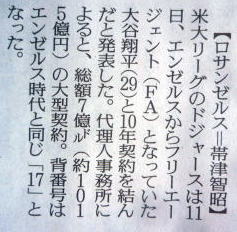 【ロサンゼルス＝帯津智昭】
米大リーグのドジャースは11
日、エンゼルスからフリーエー
ジェント（ＦＡ）となっていた
大谷翔平（29）と10年契約を結ん
だと発表した。代理人事務所に
よると、総額７億㌦（約１０１
５億円）の大型契約。背番号は
エンゼルス時代と同じ「17」と
なった。